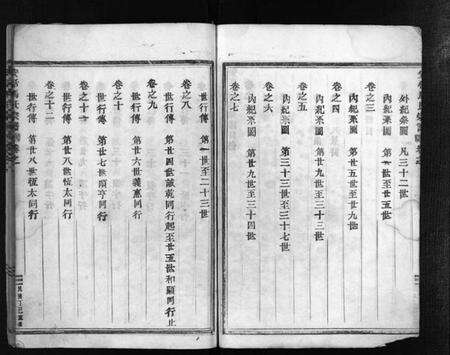 外紀系圖 凡三十二世
卷之三
內紀系圖 第一世至廿五世
卷之四
內紀系圖 第廿五世至廿九世
卷之五
內紀系圖 第廿九世至三十三世
卷之六
內紀系圖 第三十三世至三十七世
卷之七
內紀系圖 第廿九世至三十四世
世行傳 第一世至二十三世
卷之八
世行傳 第廿四世 同行起至廿五世和顯同行止
卷之九
世行傳 第廿六世義 同行
卷之十
世行傳 第廿七世順亨同行
卷之十一
世行傳 第廿八世恆太同行
卷之十二
世行傳 第廿八世恆太同行